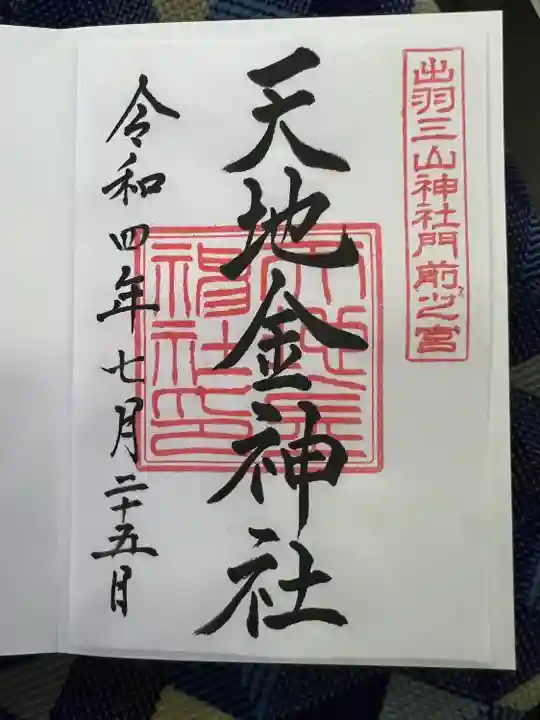 出羽三山神社門前之宮
天地金神社
令和四年七月二十五日